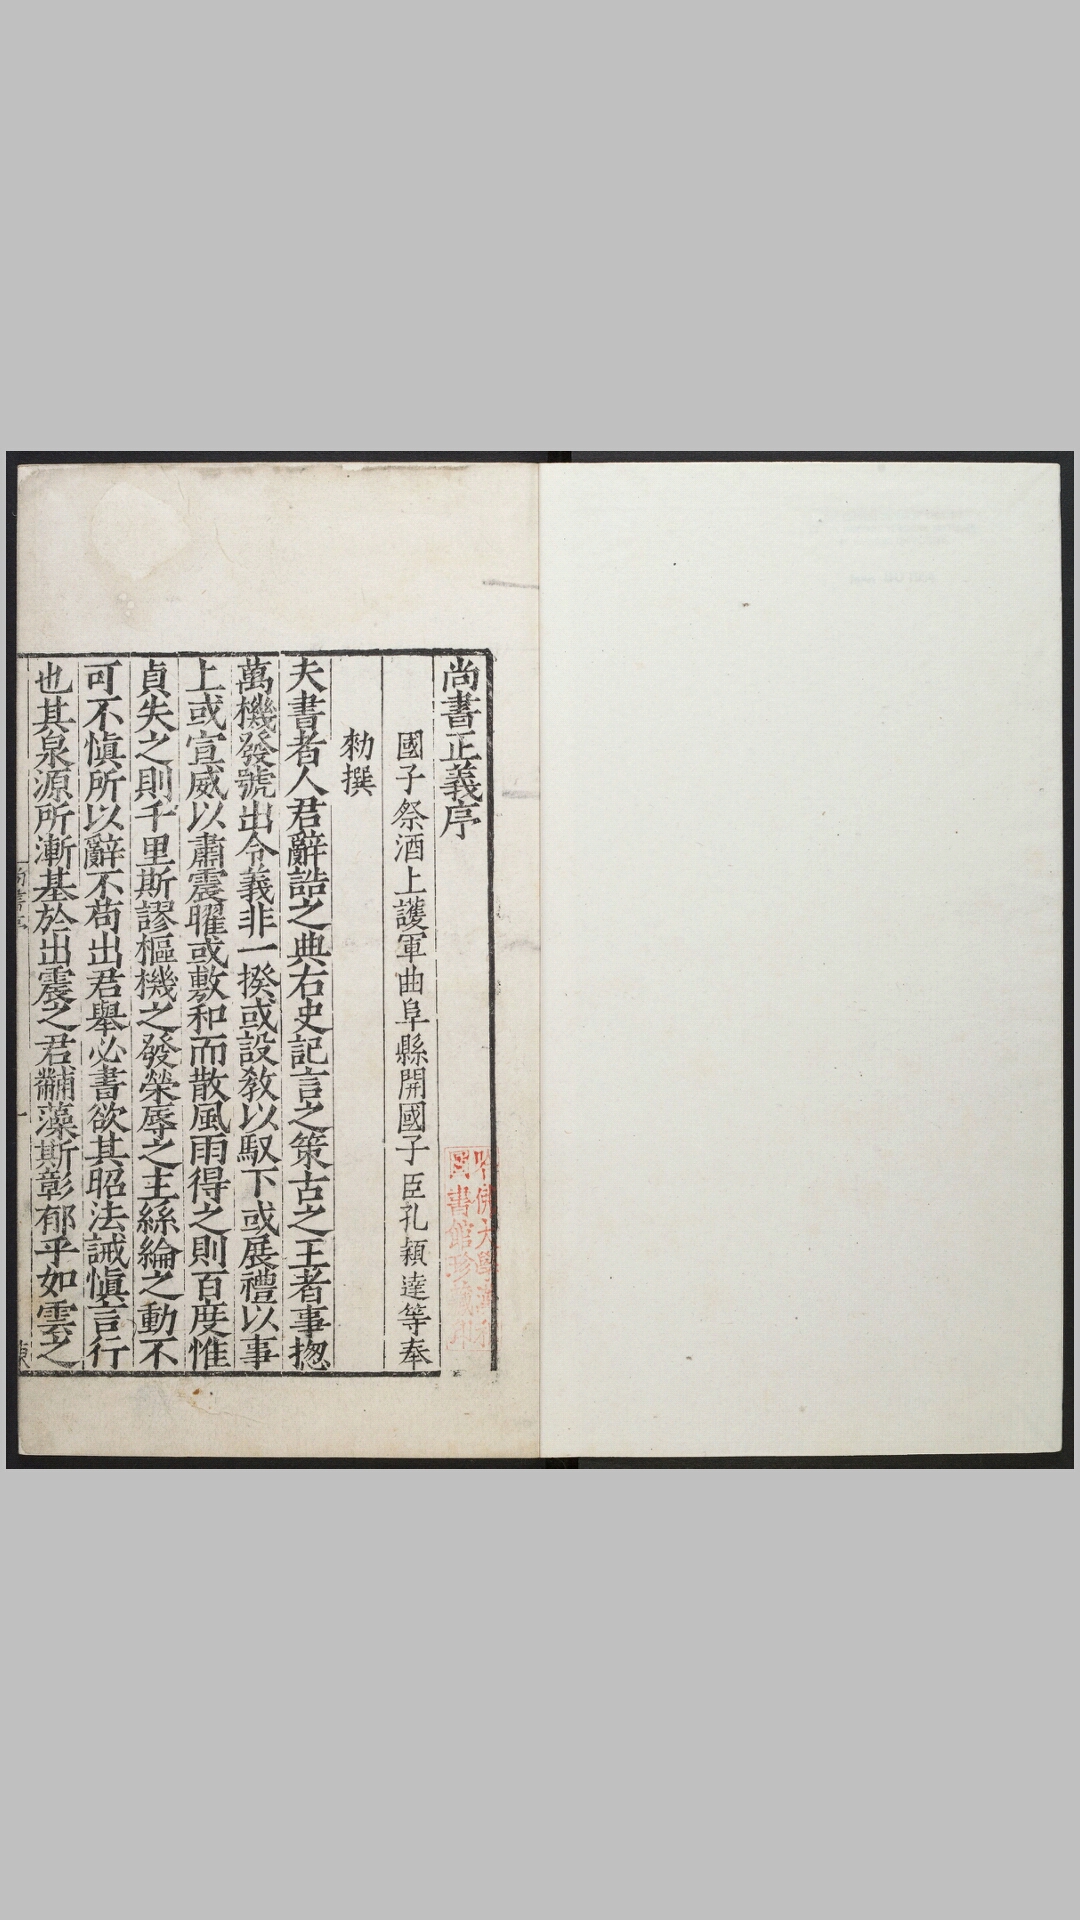 尚書正義序
國子祭酒上護軍曲阜縣開國子臣孔穎達等奉
勑撰
夫書者人君辭誥之典右史記言之策古之王者事揔
萬機發號出令義非一揆或設敎以馭下或展禮以事
上或宣威以肅震曜或敷和而散風雨得之則百度惟
貞失之則千里斯謬樞機之發榮辱之主絲綸之動不
可不愼所以辭不苟出君舉必書欲其昭法誡愼言行
也其泉源所漸基於出震之君黼藻斯彰郁乎如雲之